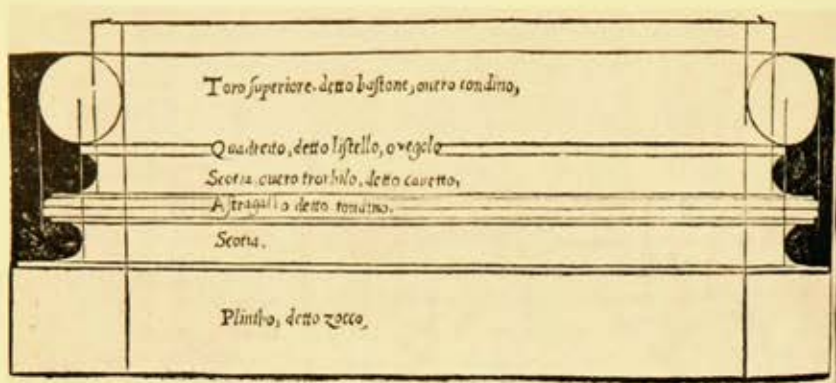 Toro superiore, detto bastone, overo tondino,
Quadretto, detto listello, o regolo
Scotia, overo trochilo, detto cavetto,
Astragallo detto tondino.
Scotia.
Plintho, detto zocco,